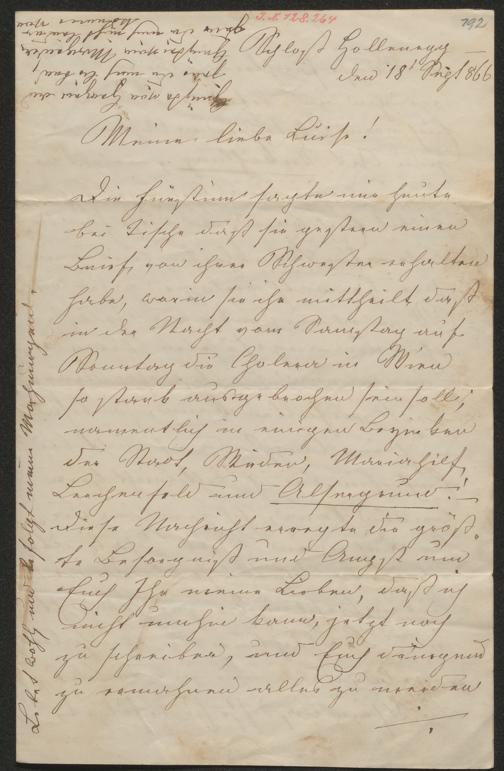 I. N. 128.264
192
Schloß Hollenegg
den 18t Sept 866
Meine liebe Luise!
Die Fürstinn sagte mir heute
bei Tische daß sie gestern einen
Brief von ihrer Schwester erhalten
habe, worin sie ihr mittheilt daß
in der Nacht vom Samstag auf
Sonntag die Cholera in Wien
so stark ausgebrochen sein soll;
namentlich in einigen Bezirken
der Stadt, Wieden, Mariahilf,
Lerchenfeld und Alsergrund!
Diese Nachricht erregte die größ-
te Besorgniß und Angst um
Euch Ihr meine Lieben, daß ich
nicht umhin kann, jetzt noch
zu schreiben, und Euch dringend
zu ermahnen alles zu meiden
Lebet wohl und befolgt meine Mahnungen.